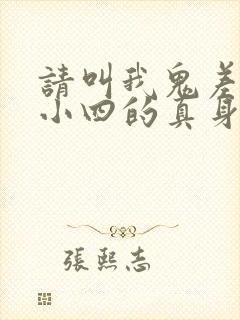 請叫我鬼差
小四的真身
張熙志